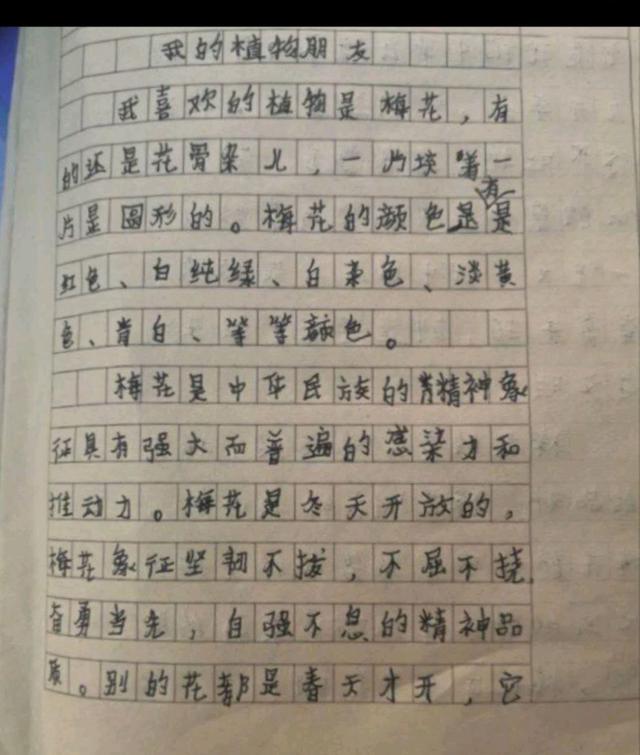 我的植物朋友
我喜欢的植物是梅花，有
的还是花骨朵儿，一片挨着一
片是圆形的。梅花的颜色是有是
红色、白纯绿、白枣色、淡黄
色、青白、等等颜色。
梅花是中华民族的精神象
征具有强大而普遍的感染力和
推动力。梅花是冬天开放的，
梅花象征坚韧不拔，不屈不挠
奋勇当先，自强不息的精神品
质。别的花都是春天才开，它